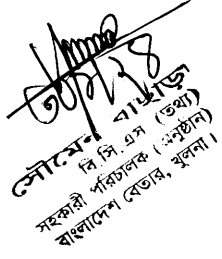 সৌমেন
বি.সি.এস (তথ্য)
সহকারী পরিচালক (অনুষ্ঠান)
বাংলাদেশ বেতার, খুলনা।